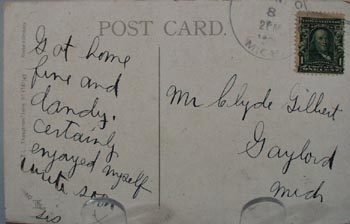 POST CARD.
8
2 PM
MICH
1
Got home
fine and
dandy.
certainly
enjoyed myself
write soon
Sis
Mr Clyde Gilbert
Gaylord
Mich